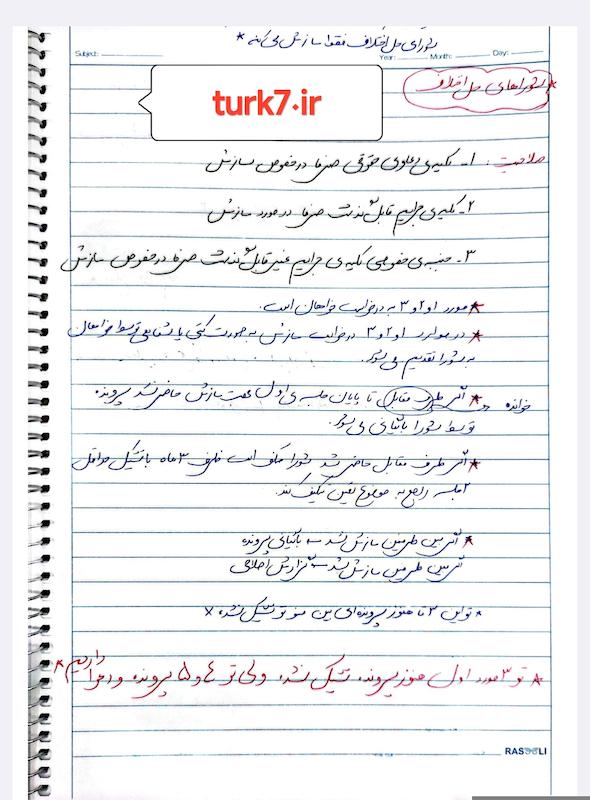 شورای حل اختلاف فقط سازش می‌کنه *
Subject: Year: Month: Day:
turk7.ir
* شوراهای حل اختلاف
صلاحیت: ۱- کلیه‌ی دعاوی حقوقی صرفا در خصوص سازش
۲- کلیه‌ی جرایم قابل گذشت صرفا در مورد سازش
۳- جنبه‌ی خصوصی کلیه‌ی جرایم غیر قابل گذشت صرفا در خصوص سازش
* مورد ۱ و ۲ و ۳ به درخواست خواهان است.
* در موارد ۱ و ۲ و ۳ درخواست سازش به صورت کتبی یا شفاهی توسط خواهان
به شورا تقدیم می‌شود.
خوانده * اگر طرف مقابل تا پایان جلسه‌ی اول جهت سازش حاضر نشد پرونده
توسط شورا بایگانی می‌شود.
* اگر طرف مقابل حاضر شد شورا مکلف است ظرف ۳ ماه با تشکیل حداقل
۲ جلسه راجع به موضوع تعیین تکلیف کند.
* اگر بین طرفین سازش نشد ← بایگانی پرونده
اگر بین طرفین سازش شد ← گزارش اصلاحی
* تو این ۳ تا هنوز پرونده‌ای بین من و تو تشکیل نشده x
* تو ۳ مورد اول هنوز پرونده تشکیل نشده ولی تو ۴ و ۵ پرونده و دعوا داریم *
RASOOLI